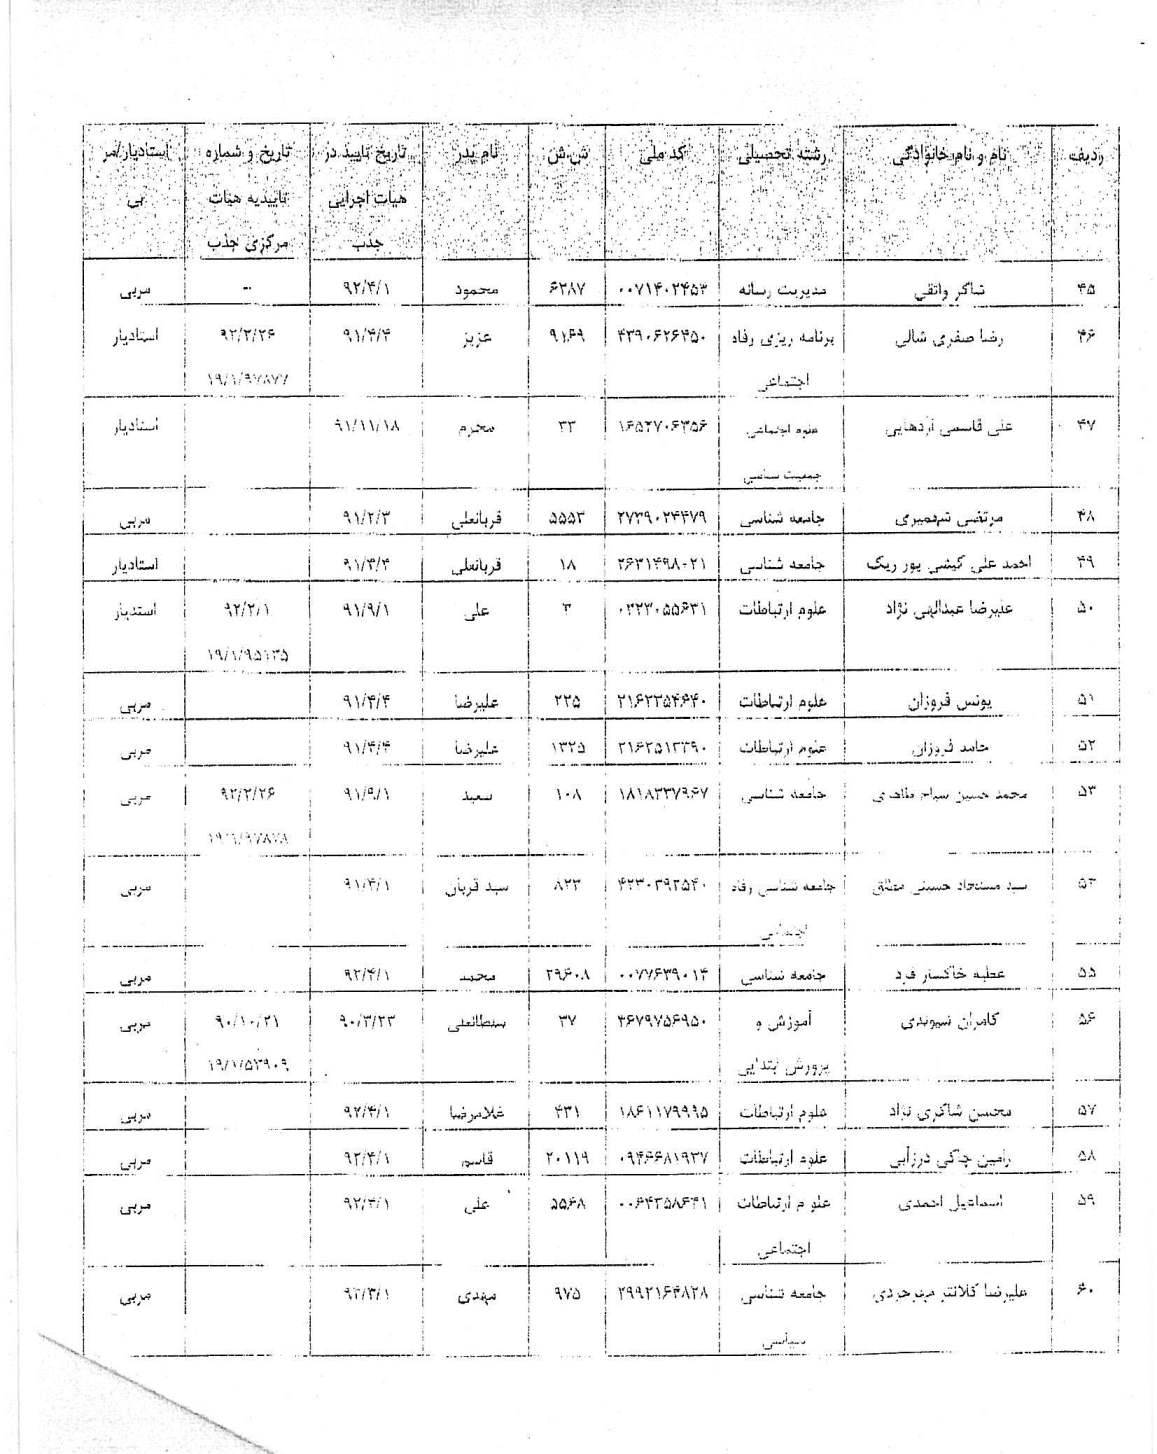 ردیف نام و نام خانوادگی رشته تحصیلی کد ملی ش.ش نام پدر تاریخ تایید در تاریخ و شماره استادیار/مر
هیات اجرایی تاییدیه هیات بی
جذب مرکزی جذب
۴۵ شاکر واثقی مدیریت رسانه ۰۰۷۱۴۰۲۴۵۳ ۶۲۸۷ محمود ۹۲/۴/۱ -- مربی
۴۶ رضا صفری شالی برنامه ریزی رفاه ۴۳۹۰۶۲۶۴۵۰ ۹۱۶۹ عزیز ۹۱/۴/۴ ۹۲/۲/۲۶ استادیار
اجتماعی ۱۹/۱/۹۷۸۷۷
۴۷ علی قاسمی اردهایی علوم اجتماعی ۱۶۵۲۷۰۶۳۵۶ ۳۳ محرم ۹۱/۱۱/۱۸ استادیار
جمعیت شناسی
۴۸ مرتضی جامعه شناسی ۲۷۳۹۰۲۴۴۷۹ ۵۵۵۳ قربانعلی ۹۱/۲/۳ مربی
۴۹ احمد علی کیشی پور ریک جامعه شناسی ۱۸ قربانعلی ۹۱/۳/۴ استادیار
۵۰ علیرضا عبدالهی نژاد علوم ارتباطات ۳ علی ۹۱/۹/۱ ۹۲/۲/۱ استدیار
۱۹/۱/۹۵۱۳۵
۵۱ یونس فروزان علوم ارتباطات ۲۲۵ علیرضا ۹۱/۴/۴ مربی
۵۲ حامد فروزان علوم ارتباطات ۱۳۲۵ علیرضا ۹۱/۴/۴ مربی
۵۳ محمد حسین جامعه شناسی ۱۸۱۸۳۳۷۹۶۷ ۱۰۸ سعید ۹۱/۹/۱ ۹۲/۲/۲۶ مربی
۱۹/۱/۹۷۸۷۸
سید حسینی مطلق جامعه شناسی رفاه ۸۲۳ سید قربان ۹۱/۴/۱ مربی
اجتماعی
۵۵ عطیه خاکسار فرد جامعه شناسی ۰۰۷۷۶۳۹۰۱۴ ۲۹۶۰۸ محمد ۹۲/۴/۱ مربی
۵۶ کامران آموزش و ۳۷ سلطانعلی ۹۰/۳/۲۳ ۹۰/۱۰/۲۱ مربی
پرورش ابتدایی ۱۹/۱/۵۳۹۰۹
۵۷ محسن شاکری نژاد علوم ارتباطات ۱۸۶۱۱۷۹۹۹۵ ۴۳۱ غلامرضا ۹۲/۴/۱ مربی
۵۸ رامین چاکی درزآبی علوم ارتباطات ۰۹۴۶۶۸۱۹۳۷ ۲۰۱۱۹ قاسم ۹۲/۴/۱ مربی
۵۹ اسماعیل احمدی علوم ارتباطات ۰۰۶۴۳۵۸۶۴۱ ۵۵۶۸ علی ۹۲/۴/۱ مربی
اجتماعی
۶۰ علیرضا کلانتر مهرجردی جامعه شناسی ۲۹۹۲۱۶۴۸۲۸ ۹۷۵ مهدی ۹۲/۳/۱ مربی
سیاسی